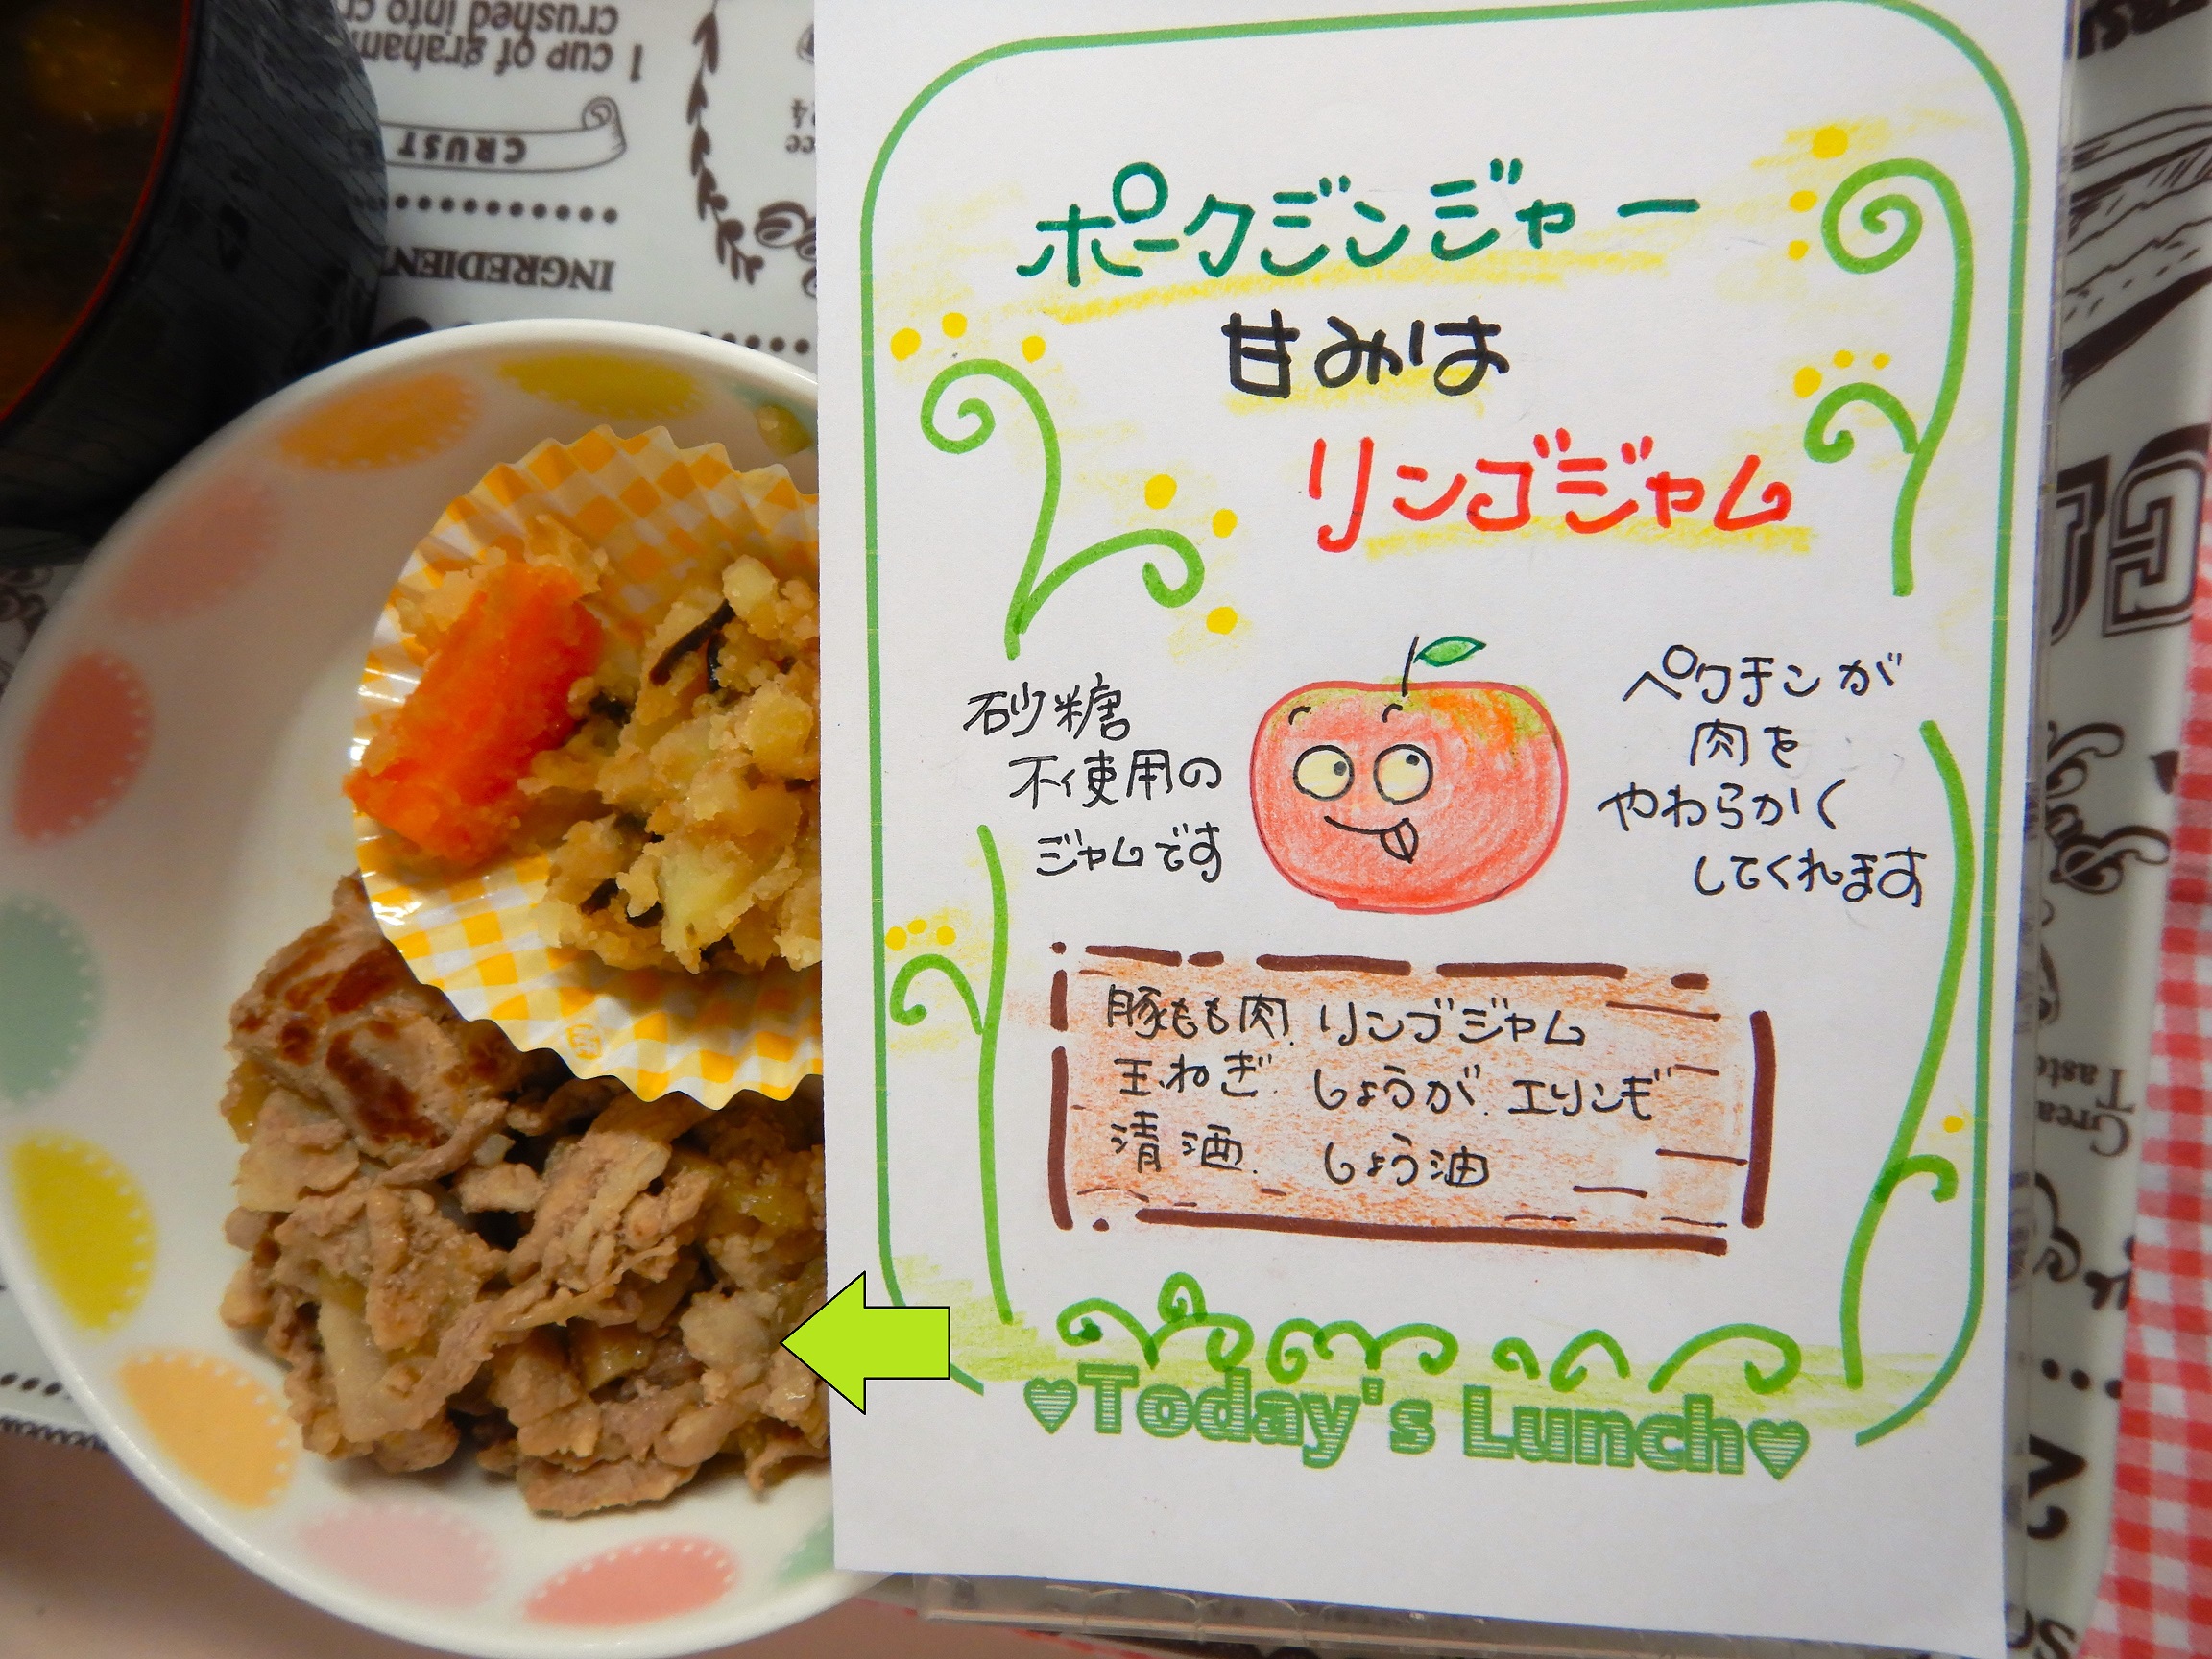 ポークジンジャー
甘みは
リンゴジャム
砂糖
不使用の
ジャムです
ペクチンが
肉を
やわらかく
してくれます
豚もも肉. リンゴジャム
玉ねぎ. しょうが. エリンギ
清酒. しょう油
♥Today's Lunch♥
crushed into
1 cup of graham
CRUST
INGREDIEN